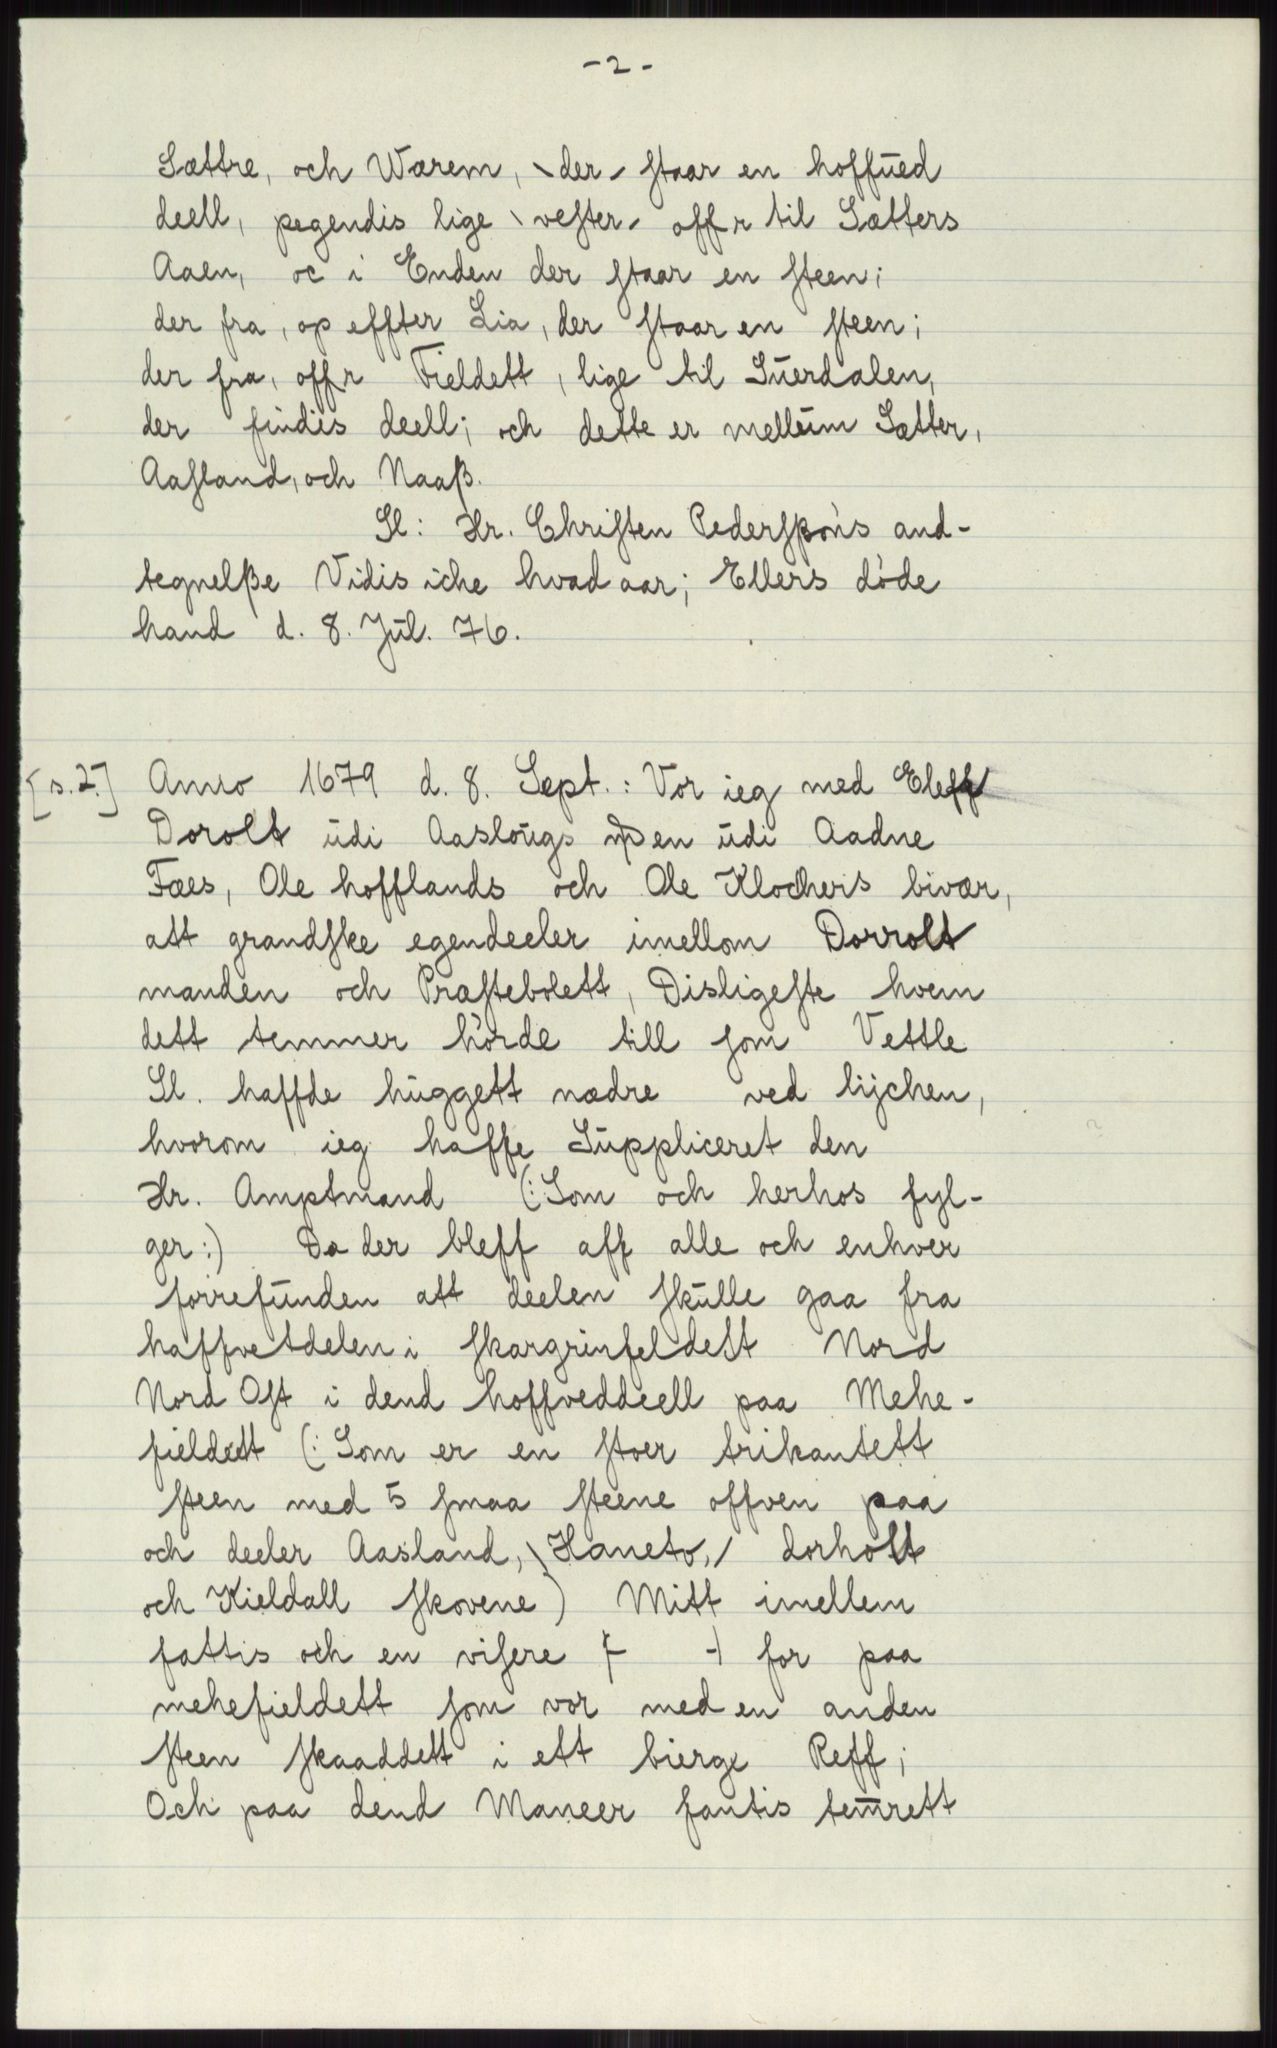 - 2 -
Sættre, och Warem, \ der / staar en hoffued
deell, pegendis lige \ vester / offr til Sætters
Aaen, oc i Enden der staar en steen;
der fra, op effter Lia, der staar en steen;
der fra, offr Fieldett, lige til Suerdalen,
der findis deell; och dette er mellum Sætter,
Aasland, och Naaß.
Sl: Hr. Christen Pederssøns and-
tegnelße Vidis iche hvad aar; Ellers døde
hand d. 8. Jul. 76.
[s. 2.] Anno 1679 d. 8. Sept.: Vor ieg med Eleff
Dorolt udi Aaslougs en udi Aadne
Fæes, Ole hofflands och Ole Klochers bivær,
att grandske egendeeler imellom Dorrolt
manden och Præstebolett, Disligeste hvem
dett temmer hørde till som Vettle
Sl. haffde huggett nædre ved lijchen,
hvorom ieg haffe Suppliceret den
Hr. Amptmand (: Som och herhos fyl-
ger :) Da der bleff aff alle och enhver
forrefunden att deelen skulle gaa fra
haffvetdelen i skargrinfeldett Nord
Nord Ost i dend hoffveddeell paa Mehe-
fieldett (: Som er en stoer trikantett
steen med 5 smaa steene offven paa
och deeler Aasland, \ Haneto, / dorholt
och Kieldall skovene) Mitt imellem
fattis och en visere [- -] for paa
mehefieldett som vor med en anden
steen skaaddett i ett bierge Reff;
Och paa dend Maneer fantis temrett